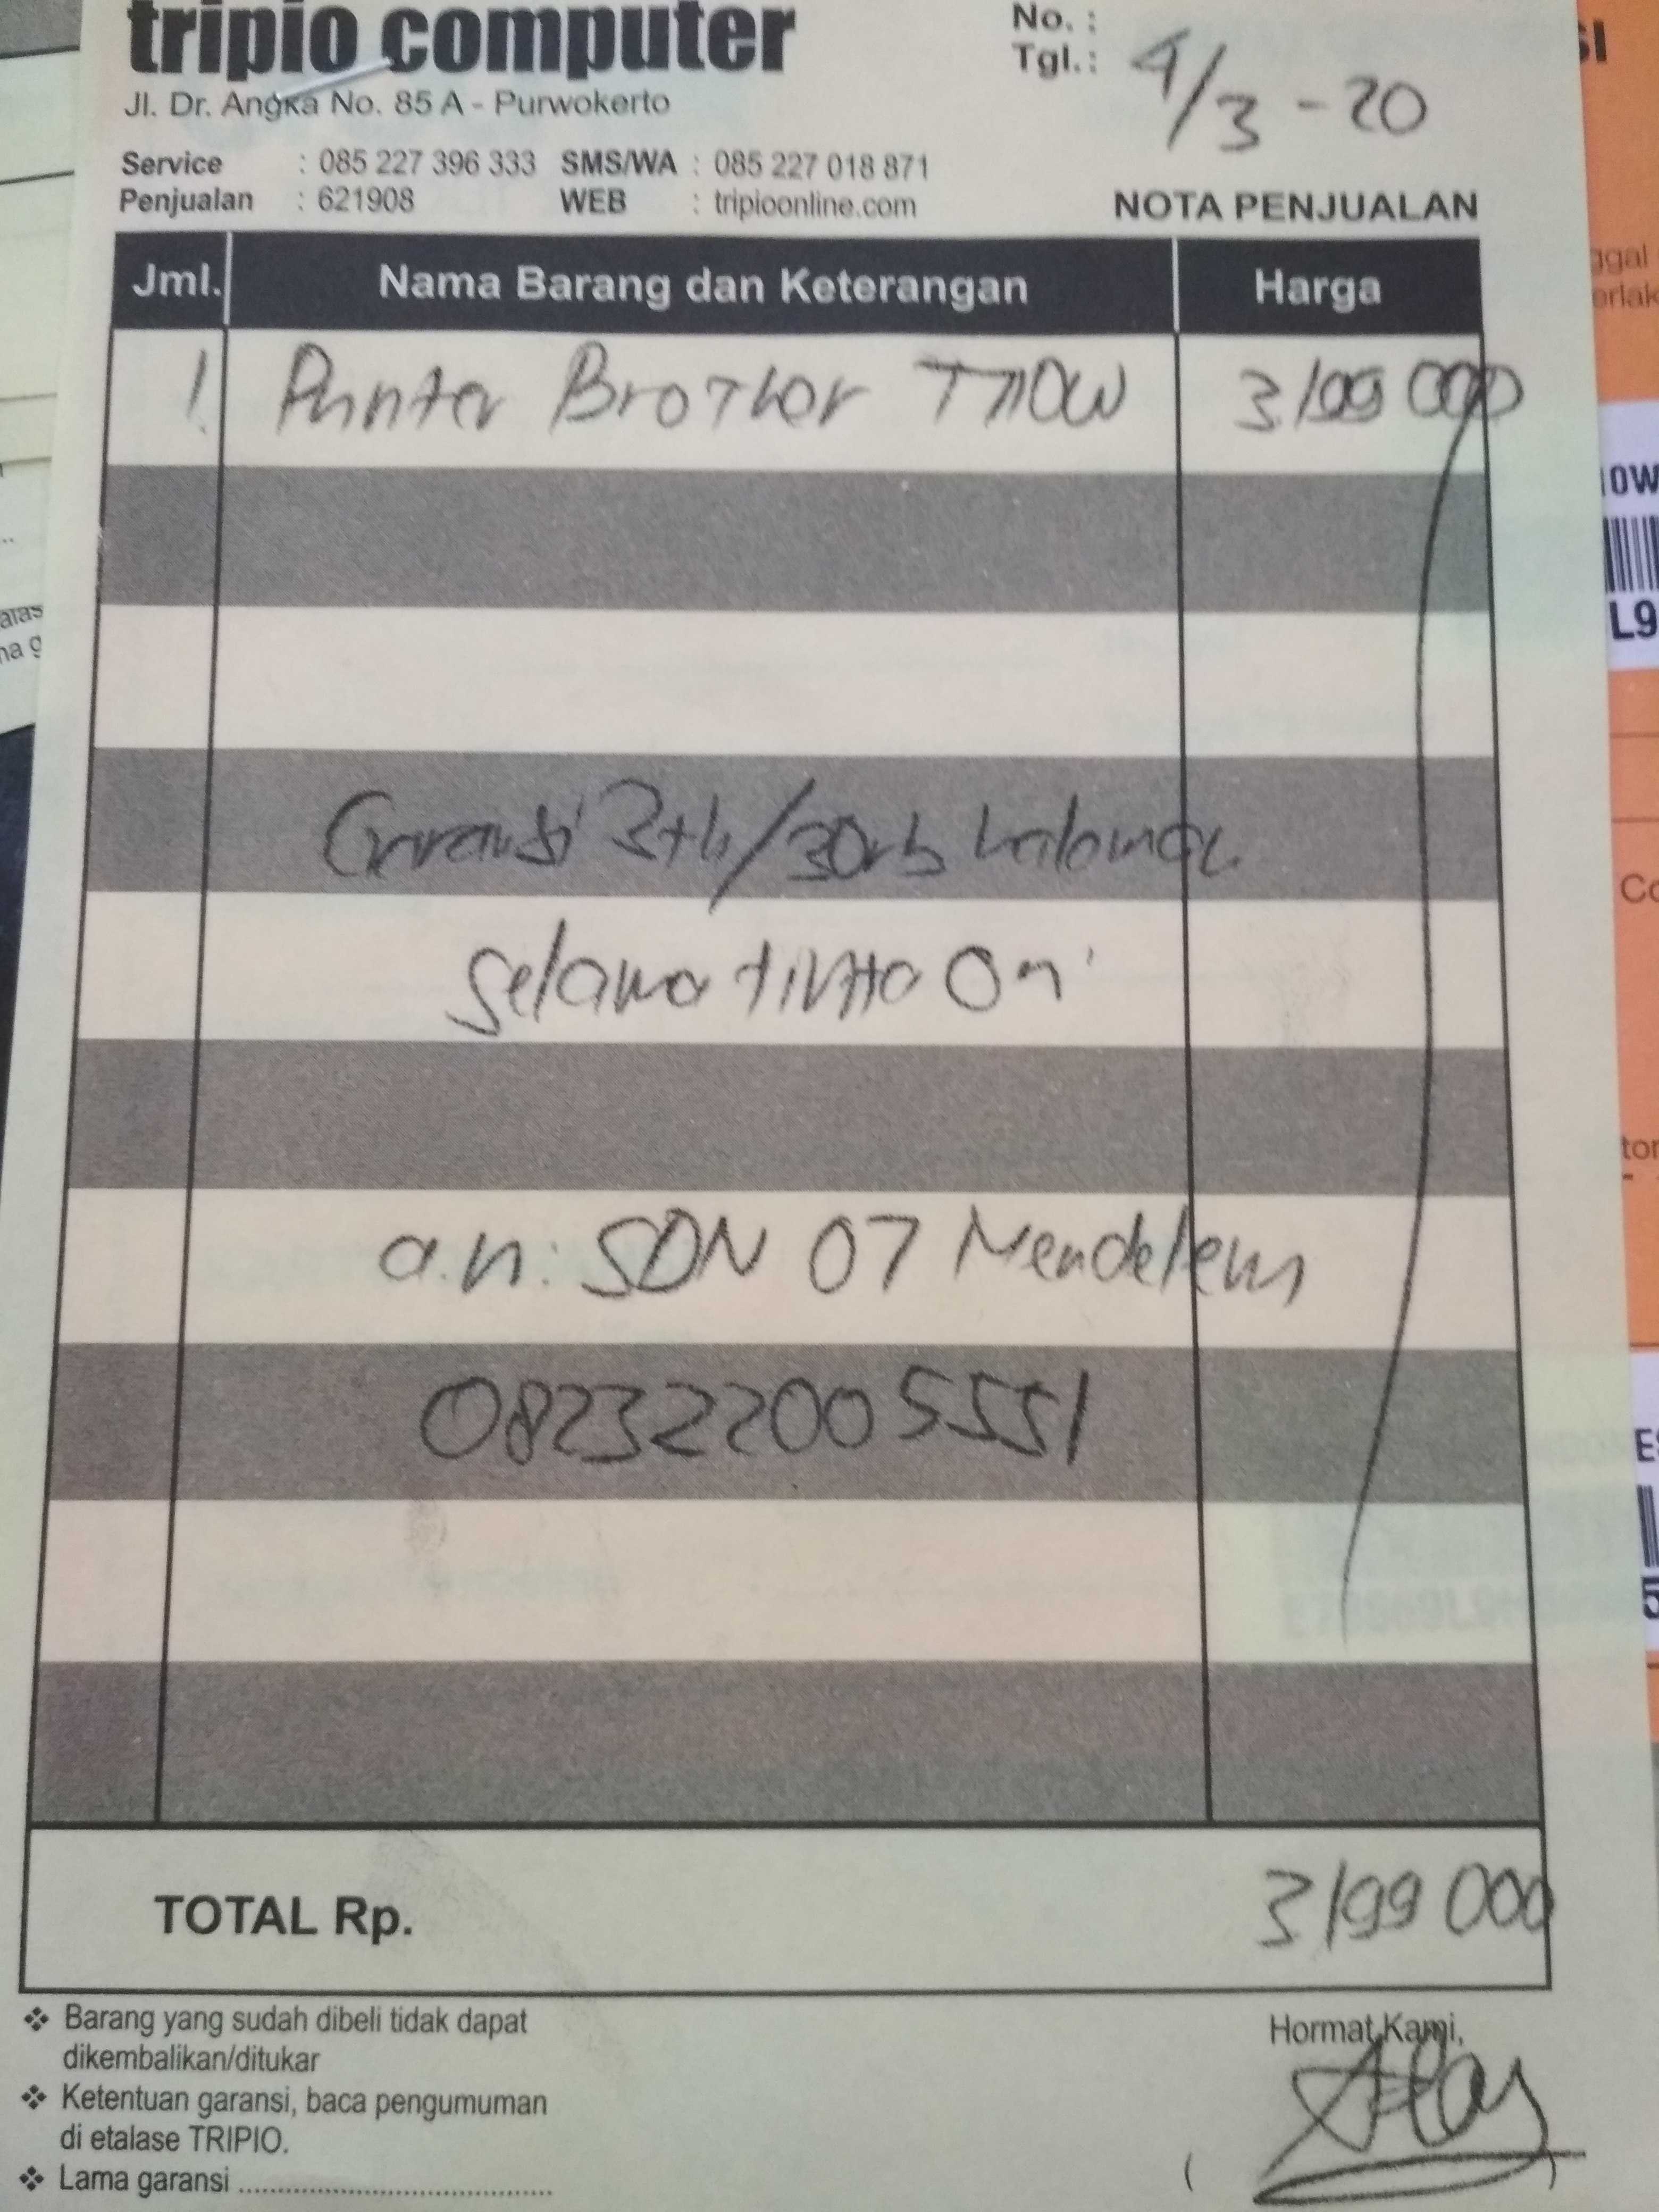 tripio computer
Jl. Dr. Angka No. 85 A - Purwokerto
No. :
Tgl. : 4/3 - 20
Service : 085 227 396 333 SMS/WA : 085 227 018 871
Penjualan : 621908 WEB : tripioonline.com
NOTA PENJUALAN
Jml. Nama Barang dan Keterangan Harga
1 Printer Brother T710W 3199 000
Garansi 3th/30rb halaman
selama tinta Ori
a.n: SDN 07 Mendelem
082322005551
TOTAL Rp. 3199 000
❖ Barang yang sudah dibeli tidak dapat
dikembalikan/ditukar
❖ Ketentuan garansi, baca pengumuman
di etalase TRIPIO.
❖ Lama garansi ........................................
Hormat Kami,
( )
SI
ggal
erlak
10W
L9
Co
tor
5
alas
na g